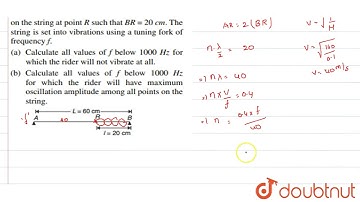 on the string at point R such that BR = 20 cm. The
string is set into vibrations using a tuning fork of
frequency f.
(a) Calculate all values of f below 1000 Hz for
which the rider will not vibrate at all.
(b) Calculate all values of f below 1000 Hz
for which the rider will have maximum
oscillation amplitude among all points on the
string.
L = 60 cm
A
40
R
B
l = 20 cm
AR = 2(BR)
n·λ/2 = 20
⇒ nλ = 40
⇒ n × V/f = 0.4
⇒ n = 0.4×f/40
V = √(T/μ)
V = 40 m/s
doubtnut